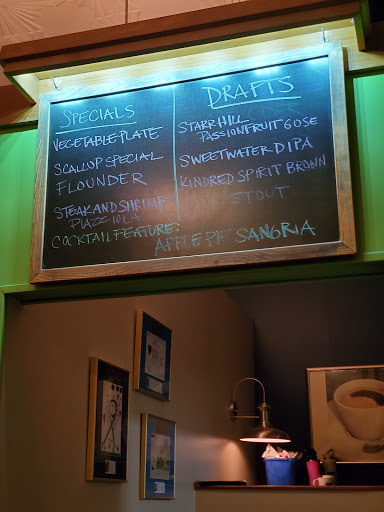 SPECIALS
VEGETABLE PLATE
SCALLOP SPECIAL
FLOUNDER
STEAK AND SHRIMP
PIAZZIOLA
COCKTAIL FEATURE:
APPLE PIE SANGRIA
DRAFTS
STARR HILL
PASSIONFRUIT GOSE
SWEETWATER DIPA
KINDRED SPIRIT BROWN
STOUT